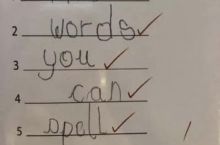 2 words
3 you
4 can
5 spell